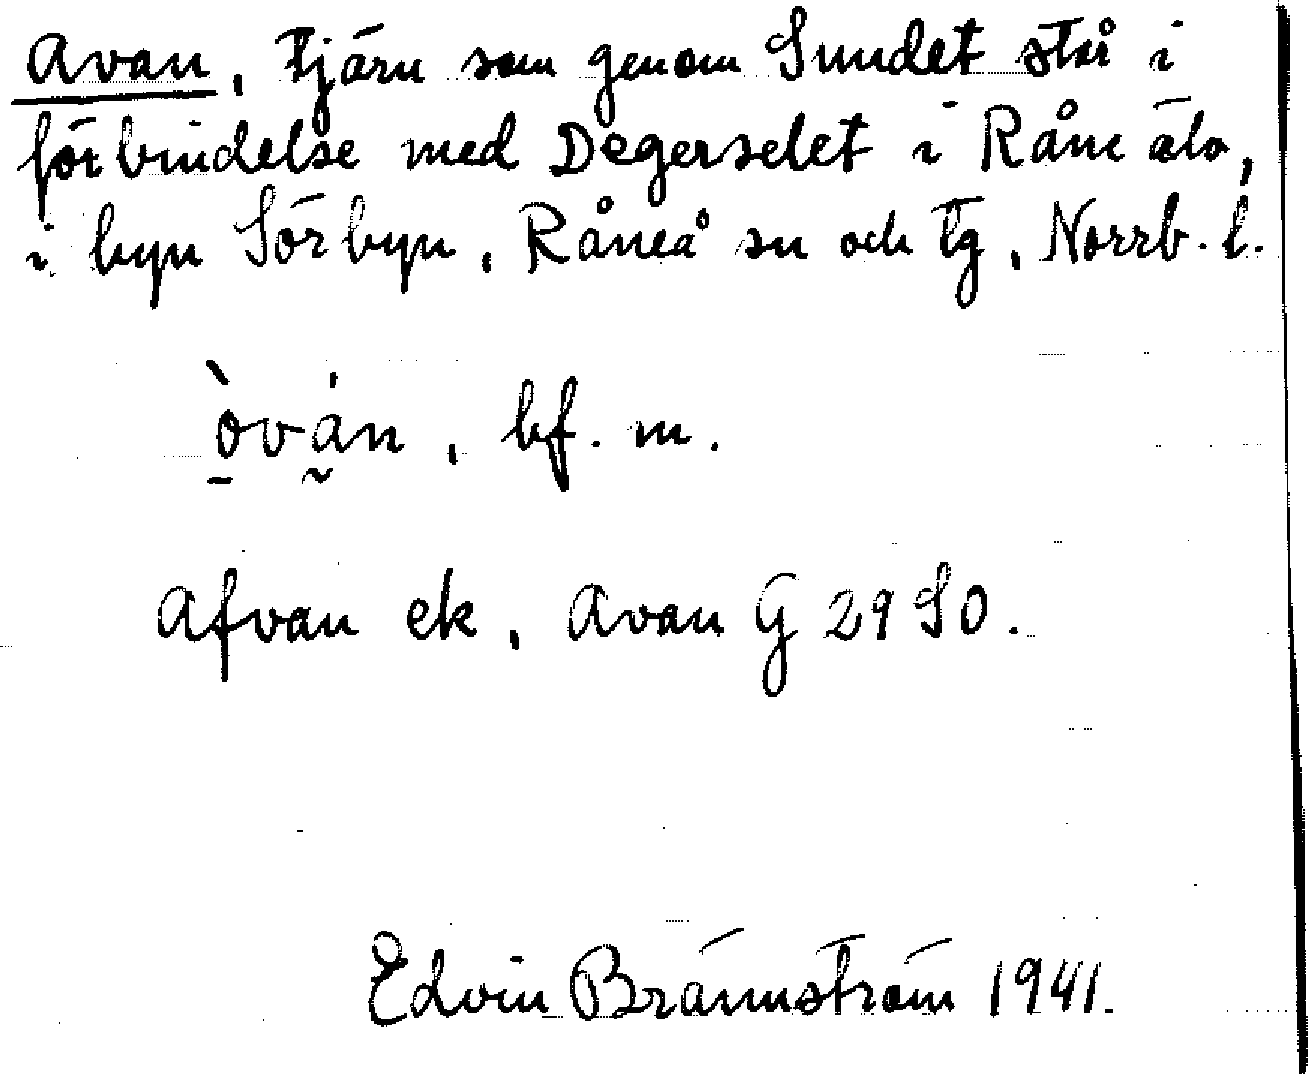 Avan, tjärn som genom Sundet står i
förbindelse med Degerselet i Råne älv,
i byn Sörbyn, Råneå sn och tg, Norrb. l.
òván, bf. m.
Afvan ek, Avan G 29 SO.
Edvin Brännström 1941.